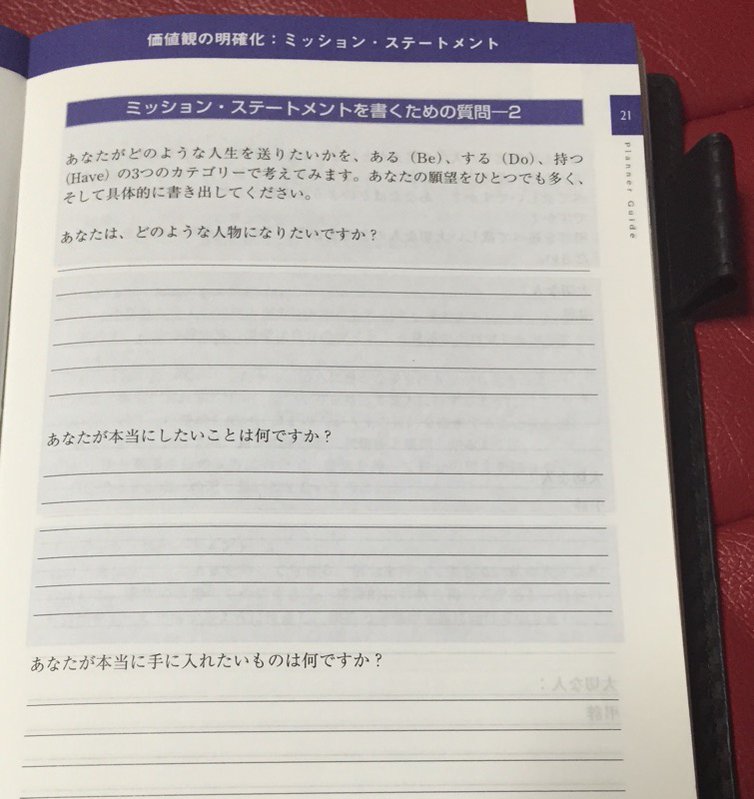 価値観の明確化：ミッション・ステートメント
ミッション・ステートメントを書くための質問―2
21
Planner Guide
あなたがどのような人生を送りたいかを、ある（Be）、する（Do）、持つ
（Have）の3つのカテゴリーで考えてみます。あなたの願望をひとつでも多く、
そして具体的に書き出してください。
あなたは、どのような人物になりたいですか？
あなたが本当にしたいことは何ですか？
あなたが本当に手に入れたいものは何ですか？